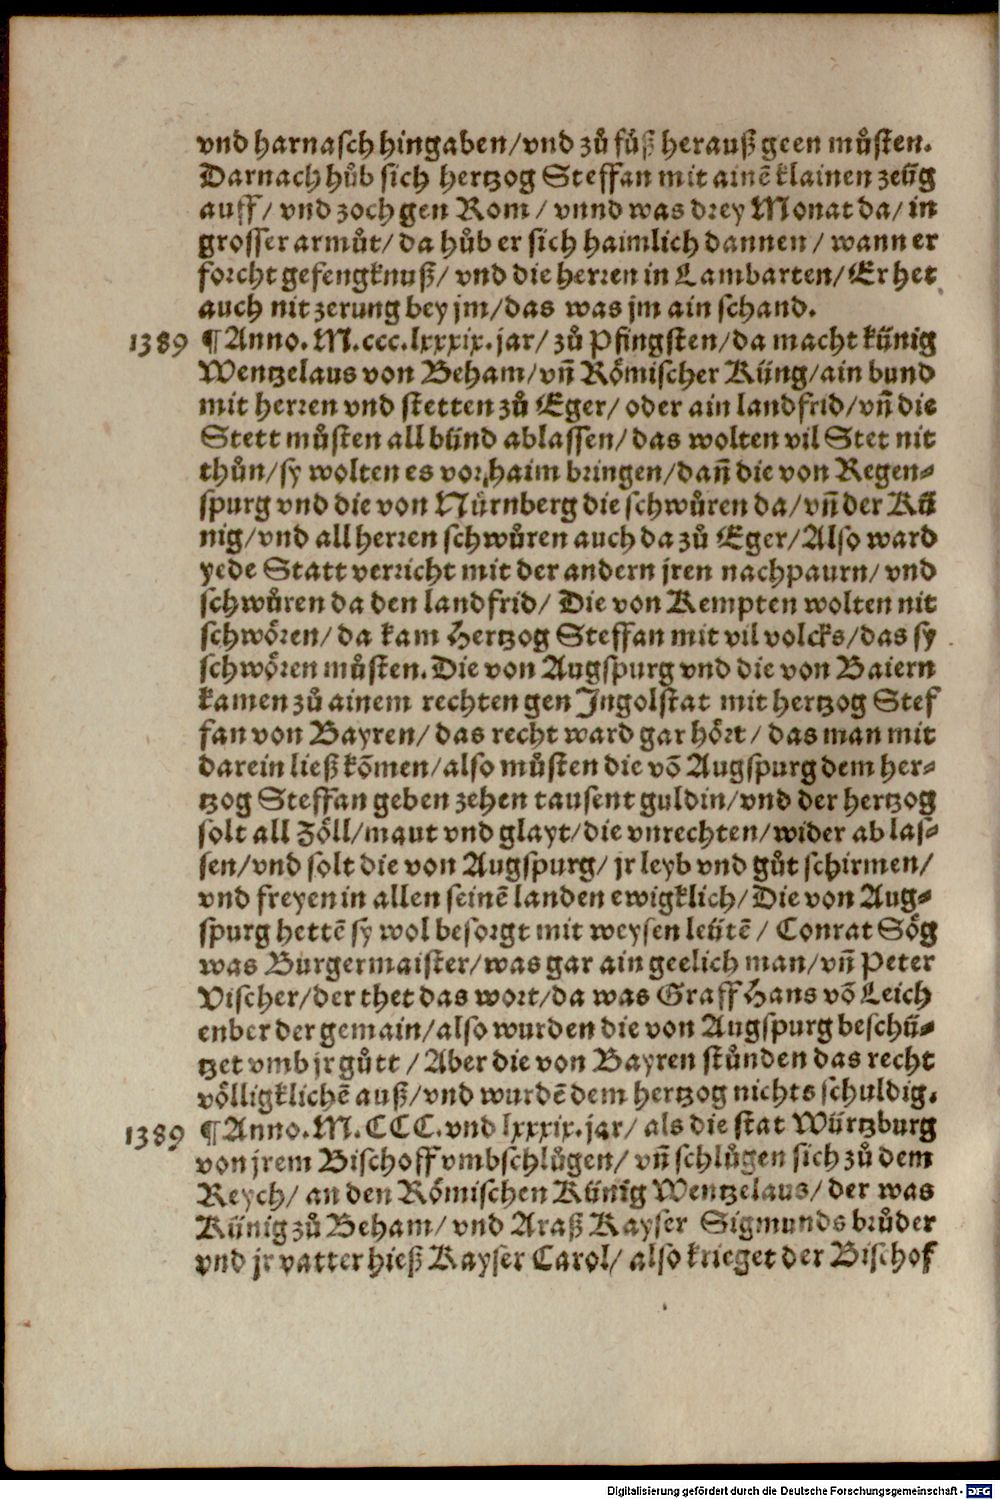 vnd harnasch hingaben/vnd zů fůß herauß geen můsten.
Darnach hůb sich hertzog Steffan mit ainē klainen zeüg
auff/ vnd zoch gen Rom/ vnnd was drey Monat da/ in
grosser armůt/ da hůb er sich haimlich dannen/ wann er
forcht gefengknuß/ vnd die herren in Lambarten/ Er het
auch nit zerung bey jm/das was jm ain schand.
1389 ¶ Anno. M.ccc.lxxxix.jar/ zů Pfingsten/da macht künig
Wentzelaus von Beham/vñ Römischer Küng/ain bund
mit herren vnd stetten zů Eger/ oder ain landfrid/vñ die
Stett můsten all bünd ablassen/das wolten vil Stet nit
thůn/sy wolten es vor haim bringen/dañ die von Regen-
spurg vnd die von Nürnberg die schwůren da/vñ der Kü
nig/vnd all herren schwůren auch da zů Eger/Also ward
yede Statt verricht mit der andern jren nachpaurn/ vnd
schwůren da den landfrid/ Die von Kempten wolten nit
schwören/da kam Hertzog Steffan mit vil volcks/das sy
schwören můsten. Die von Augspurg vnd die von Baiern
kamen zů ainem rechten gen Ingolstat mit hertzog Stef
fan von Bayren/ das recht ward gar hört/ das man mit
darein ließ kōmen/also můsten die vō Augspurg dem her-
tzog Steffan geben zehen tausent guldin/vnd der hertzog
solt all Zöll/maut vnd glayt/die vnrechten/wider ab las-
sen/vnd solt die von Augspurg/ jr leyb vnd gůt schirmen/
vnd freyen in allen seinē landen ewigklich/Die von Aug-
spurg hettē sy wol besorgt mit weysen leütē/ Conrat Sög
was Burgermaister/was gar ain geelich man/vñ Peter
Vischer/der thet das wort/da was Graff Hans vō Leich
enber der gemain/also wurden die von Augspurg beschü-
tzet vmb jr gůtt/ Aber die von Bayren stůnden das recht
völligklichē auß/vnd wurdē dem hertzog nichts schuldig.
1389 ¶ Anno. M.CCC.vnd lxxxix.jar/ als die stat Würtzburg
von jrem Bischoff vmbschlůgen/ vñ schlůgen sich zů dem
Reych/ an den Römischen Künig Wentzelaus/ der was
Künig zů Beham/ vnd Araß Kayser Sigmunds brůder
vnd jr vatter hieß Kayser Carol/ also krieget der Bischof
Digitalisierung gefördert durch die Deutsche Forschungsgemeinschaft - DFG